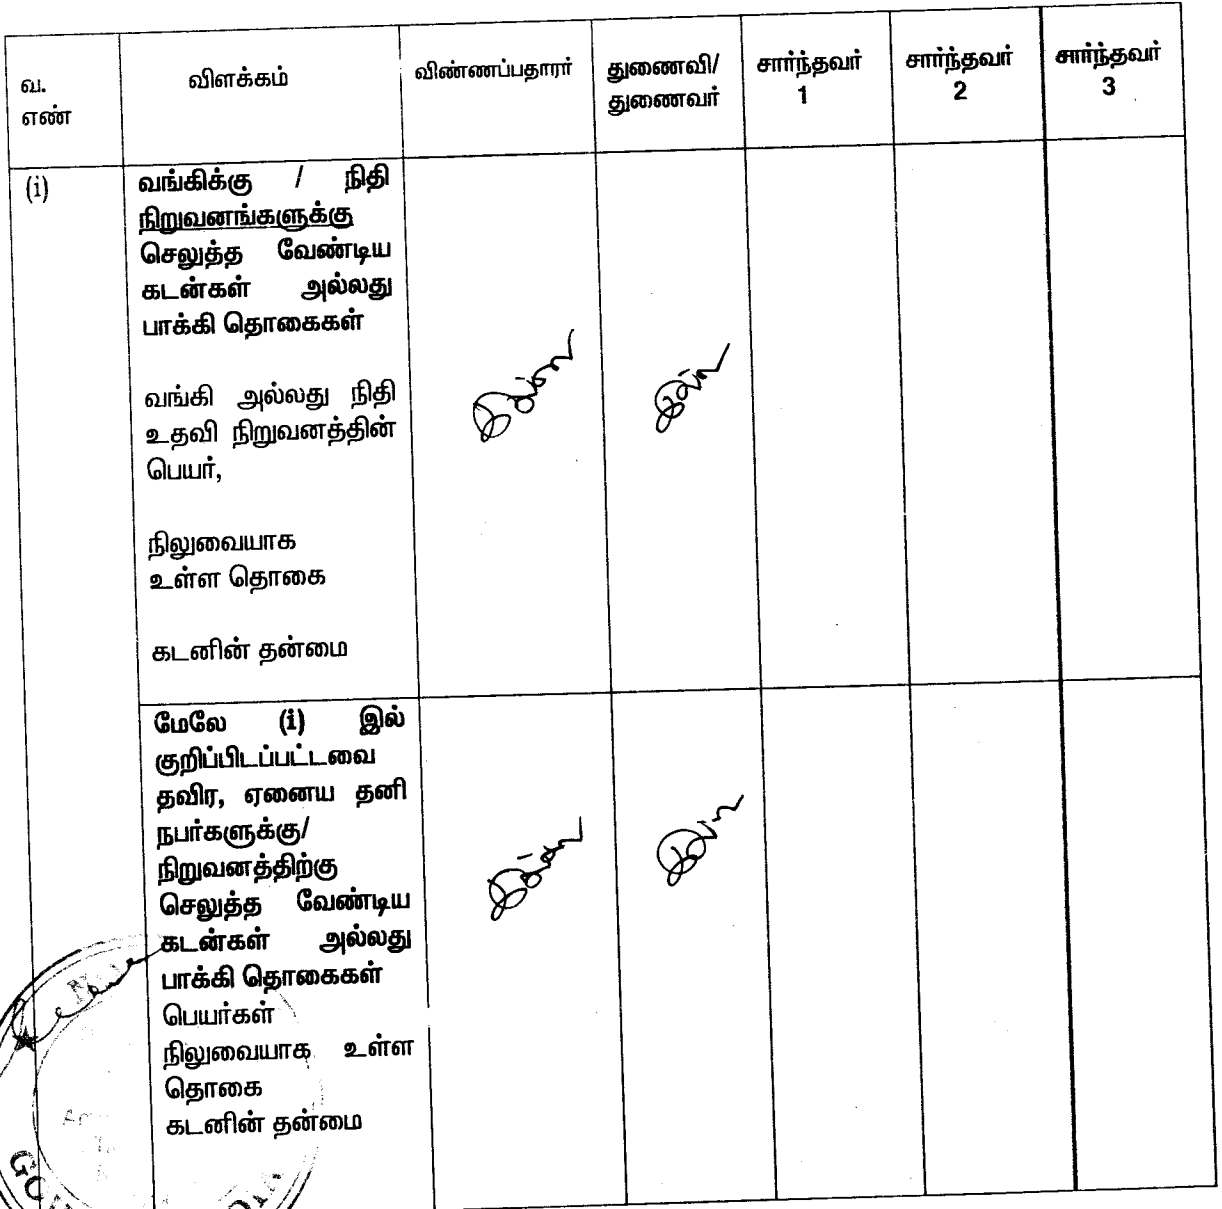 வ. எண்
விளக்கம்
விண்ணப்பதாரர்
துணைவி/ துணைவர்
சார்ந்தவர் 1
சார்ந்தவர் 2
சார்ந்தவர் 3
(i)
வங்கிக்கு / நிதி
நிறுவனங்களுக்கு
செலுத்த வேண்டிய
கடன்கள் அல்லது
பாக்கி தொகைகள்
வங்கி அல்லது நிதி
உதவி நிறுவனத்தின்
பெயர்,
நிலுவையாக
உள்ள தொகை
கடனின் தன்மை
இல்லை
இல்லை
மேலே (i) இல்
குறிப்பிடப்பட்டவை
தவிர, ஏனைய தனி
நபர்களுக்கு/
நிறுவனத்திற்கு
செலுத்த வேண்டிய
கடன்கள் அல்லது
பாக்கி தொகைகள்
பெயர்கள்
நிலுவையாக உள்ள
தொகை
கடனின் தன்மை
இல்லை
இல்லை